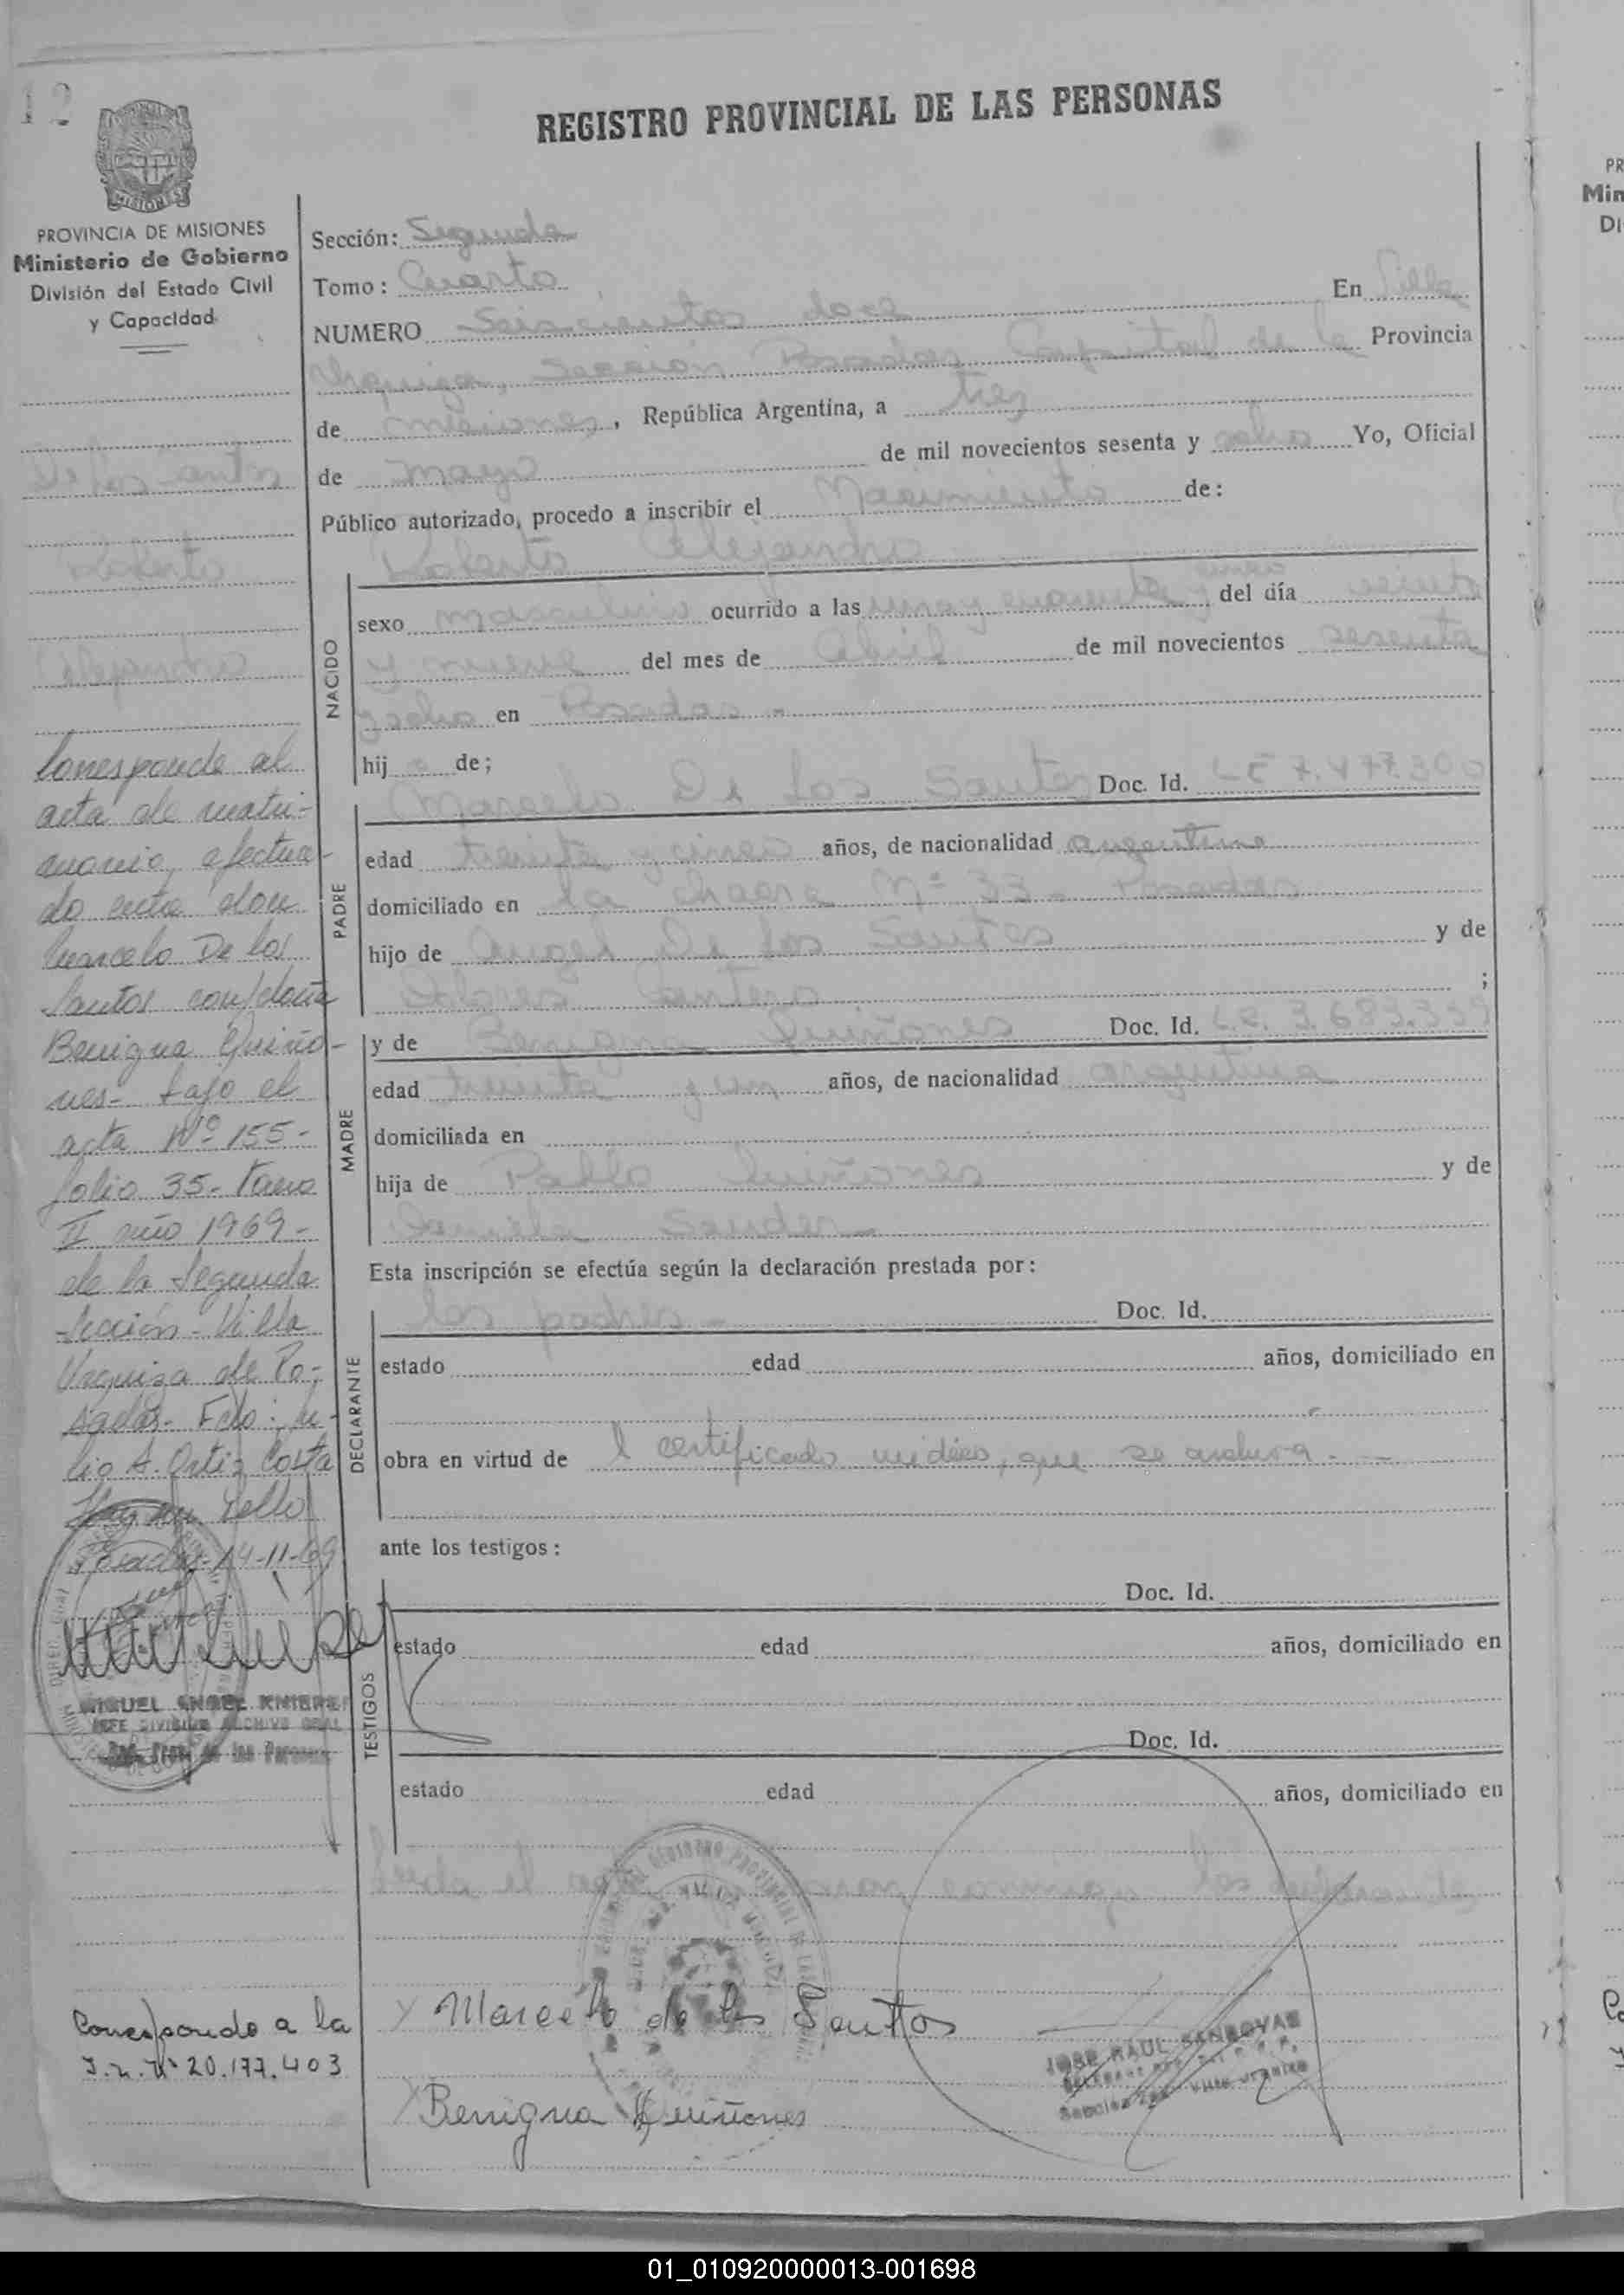 12
REGISTRO PROVINCIAL DE LAS PERSONAS
MISIONES
PROVINCIA DE MISIONES
Ministerio de Gobierno
División del Estado Civil
y Capacidad
De los Santos
Roberto
Alejandro
Corresponde al
acta de matri-
monio, efectua-
do entre don
Marcelo De los
Santos con/doña
Benigna Quiño-
nes- bajo el
acta Nº 155-
folio 35- Tomo
II año 1969-
de la Segunda
Sección- Villa
Urquiza de Po-
sadas- Fdo: Ju-
lio A. Ortiz Costa
Hay un sello
Posadas-14-11-69
MIGUEL ANGEL
JEFE DIVISION ARCHIVO GRAL
Reg. Prov. de las Personas
Corresponde a la
I.n. Nº 20.177.403
Sección: Segunda
Tomo: Cuarto
NUMERO Seiscientos doce En Villa
Urquiza, Sección Posadas Capital de la Provincia
de Misiones, República Argentina, a tres
de mayo de mil novecientos sesenta y ocho Yo, Oficial
Público autorizado, procedo a inscribir el Nacimiento de:
NACIDO
Roberto Alejandro
sexo masculino ocurrido a las una y cuarenta y cinco del día veinte
y nueve del mes de Abril de mil novecientos sesenta
y ocho en Posadas -
hijo de;
PADRE
Marcelo De los Santos Doc. Id. 7.477.300
edad treinta y cinco años, de nacionalidad argentina
domiciliado en la chacra Nº 33 - Posadas
hijo de Angel De los Santos y de
Dolores ;
MADRE
y de Benigna Quiñones Doc. Id. L.C. 3.683.339
edad treinta y un años, de nacionalidad argentina
domiciliada en
hija de Pablo Quiñones y de
Esta inscripción se efectúa según la declaración prestada por:
DECLARANTE
los padres - Doc. Id.
estado edad años, domiciliado en
obra en virtud de l certificado médico, que se archiva. -
ante los testigos:
TESTIGOS
Doc. Id.
estado edad años, domiciliado en
Doc. Id.
estado edad años, domiciliado en
Leida el acta, la firman conmigo los
Marcelo de los Santos
JOSE RAUL SANDOVAL
Benigna Quiñones
PR
Min
Di
01_010920000013-001698